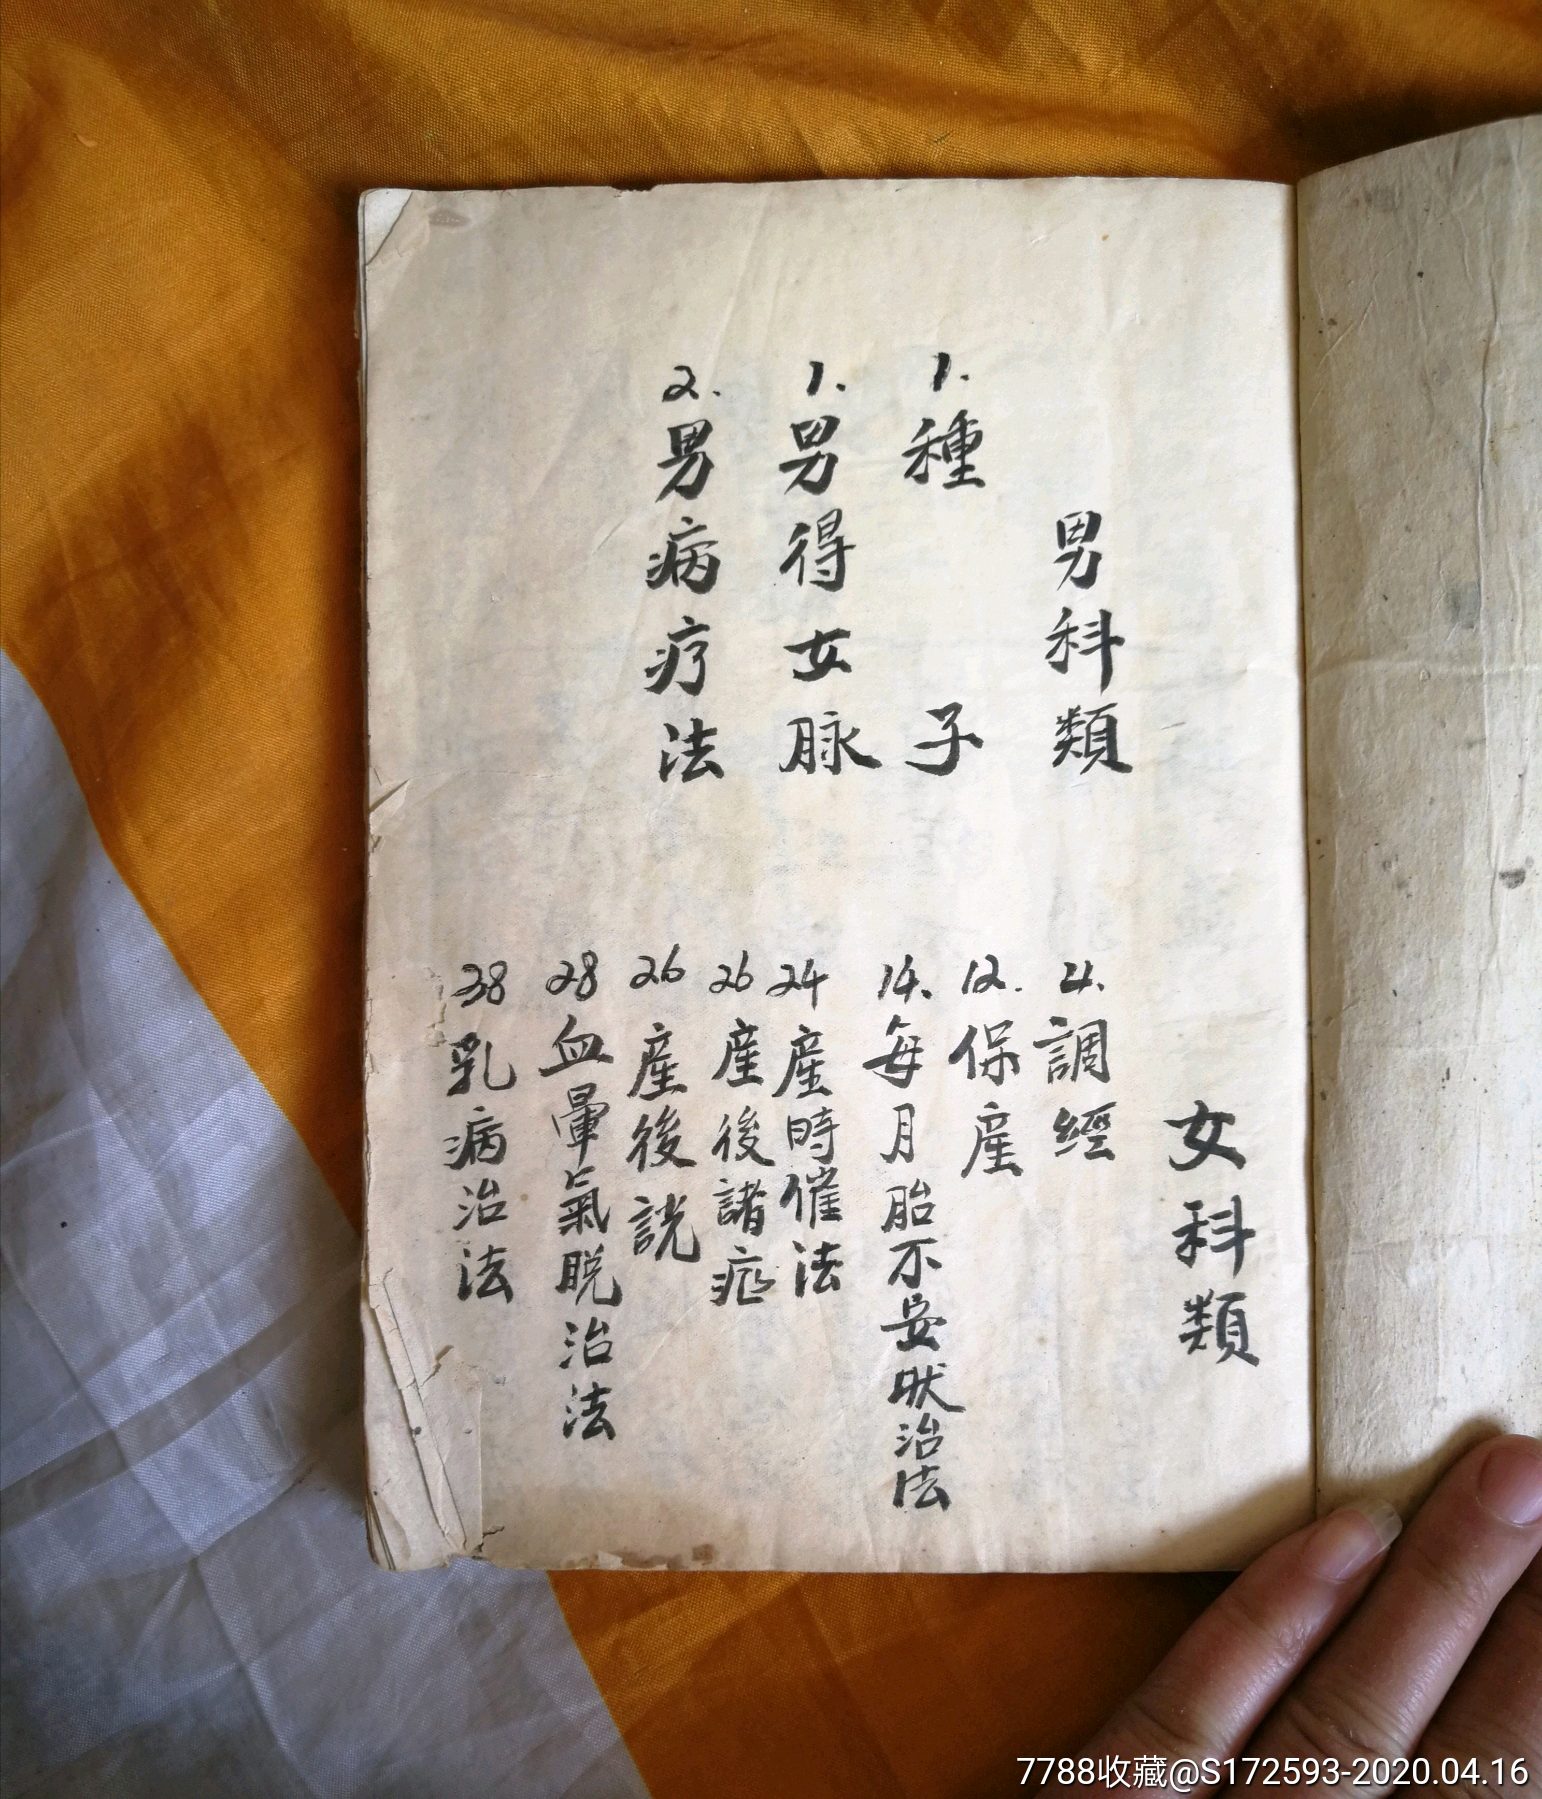 男科類
1.種子
1.男得女脉
2.男病疗法
女科類
4.調經
12.保産
14.每月胎不安狀治法
24産時催法
26産後諸症
26産後説
28血暈氣脱治法
38乳病治法
7788收藏@S172593-2020.04.16